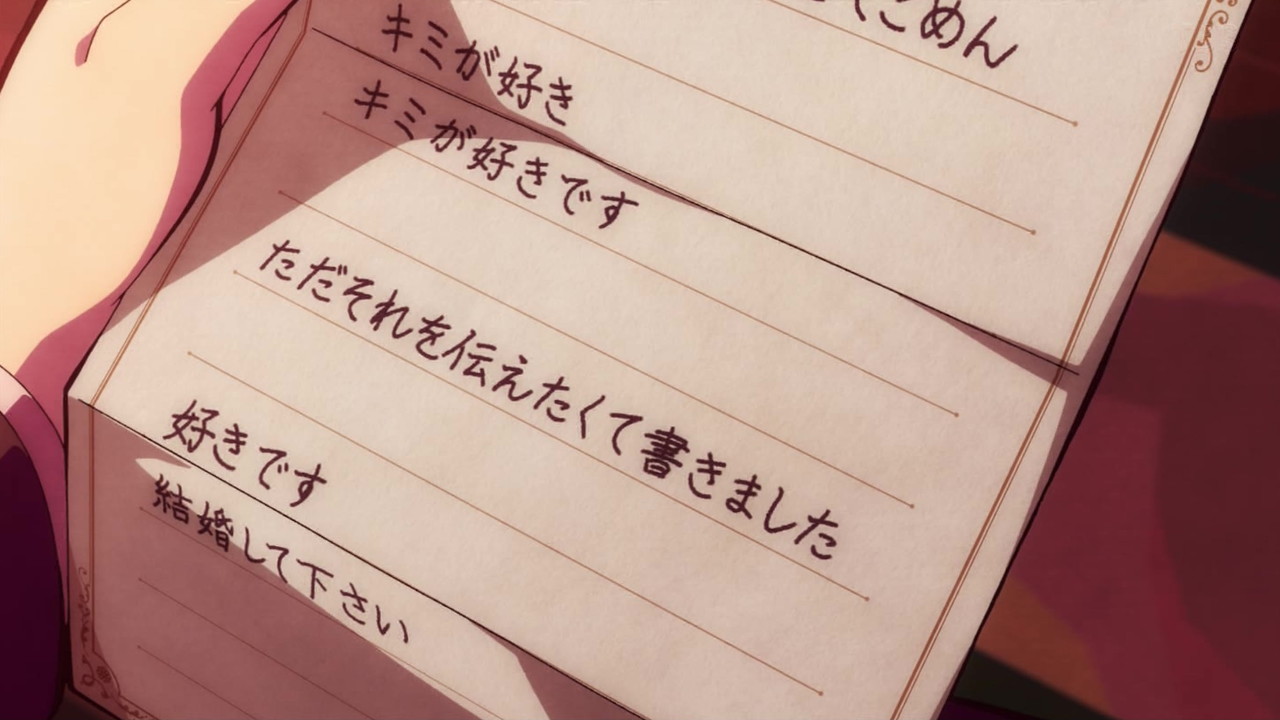 ごめん
キミが好き
キミが好きです
ただそれを伝えたくて書きました
好きです
結婚して下さい